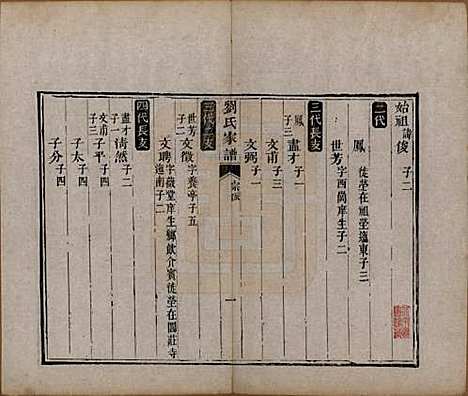 始祖諱俊 子二
二代
鳳 徙塋在祖塋迤東子三
世芳 字西尚庠生子二
三代長支
鳳子三 盡才 子一
文甫 子三
文弼 子一
劉氏家譜
宗派
一
三代二支
世芳子二 文徵 字養亭子五
文聘 字薇堂庠生鄉飲介賓徙塋在閻莊寺迤南子二
四代長支
盡才子一 清然 子二
文甫子三 子平 子四
子太 子四
子分 子四